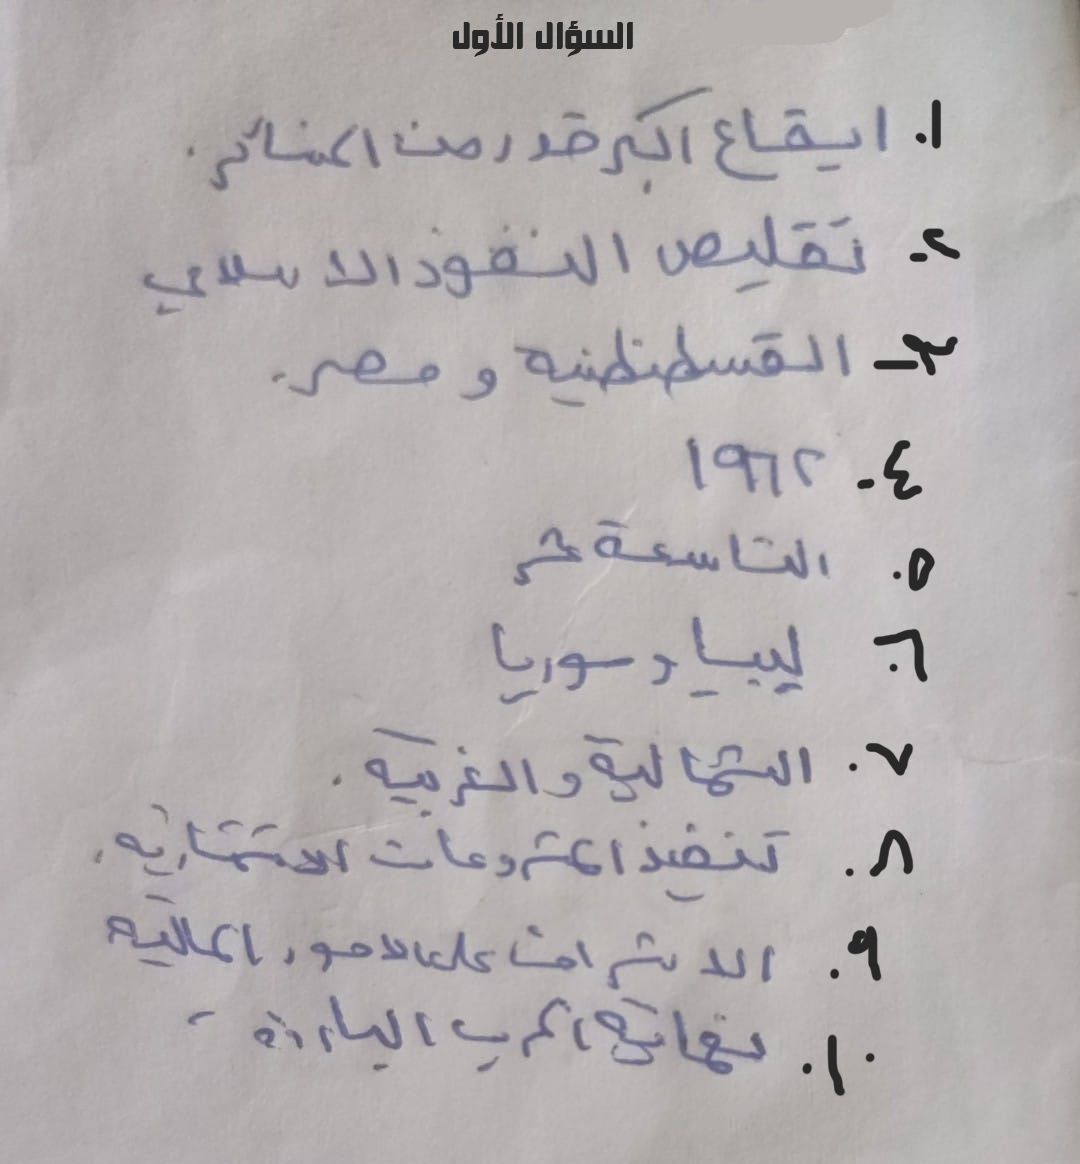 السؤال الأول
١. ايقاع اكبر قدر من الخسائر.
٢- تقليص النفوذ الاسلامي
٣- القسطنطنيه و مصر.
٤- ١٩٦٢
٥. التاسعة عشر
٦. ليبيا و سوريا
٧. الشمالية والغربيه.
٨. تنفيذ المشروعات الاستثماريه.
٩. الاشراف على الامور المالية
١٠. نهاية الحرب الباردة